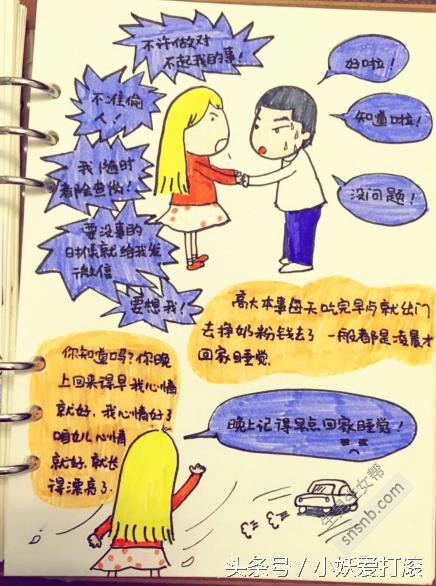 不许做对
不起我的事!
不准偷
人!
我随时
要没事的
时候就给我发
微信
要想我!
好啦!
知道啦!
没问题!
高大本事每天吃完早与就出门
去挣奶粉钱去了 一般都是凌晨才
回家睡觉.
你知道吗?你晚
上回来得早我心情
就好.我心情好了
咱女儿心情
就好.就长
得漂亮了.
晚上记得早点回家睡觉!
生男生女帮
snsnb.com
头条号 / 小妖爱打滚